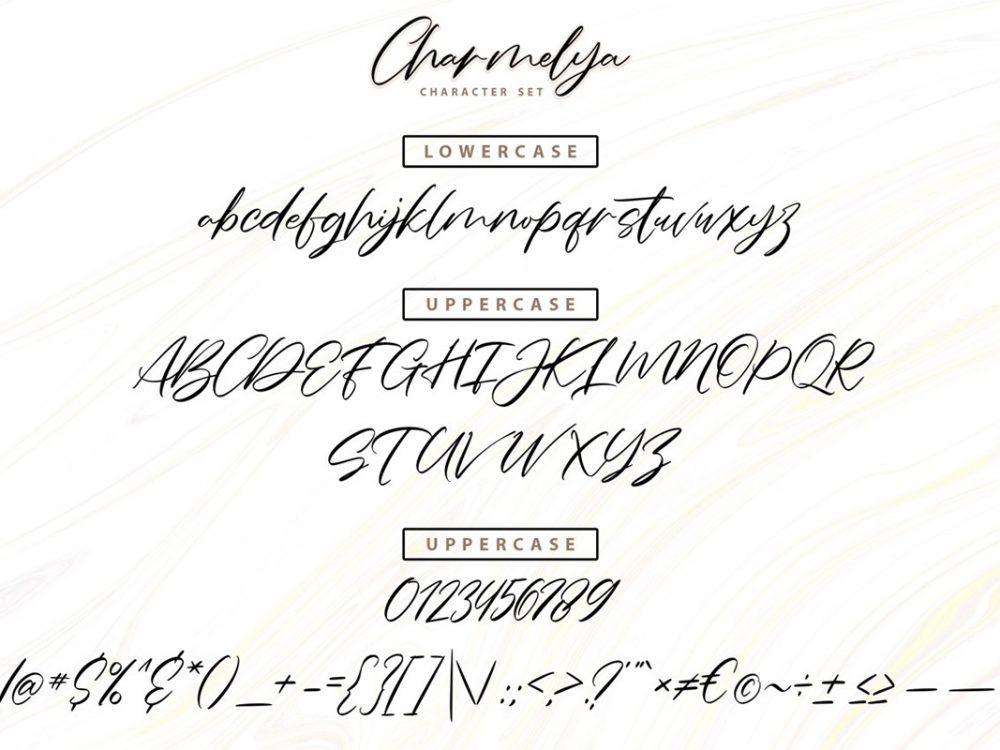 Charmelya
CHARACTER SET
LOWERCASE
abcdefghijklmnopqrstuvwxyz
UPPERCASE
ABCDEFGHIJKLMNOPQR
STUVWXYZ
UPPERCASE
0123456789
!@#$%^&*()_+-={}[]|\/:;<,>.?'"'"×≠€©~÷±≤≥–—